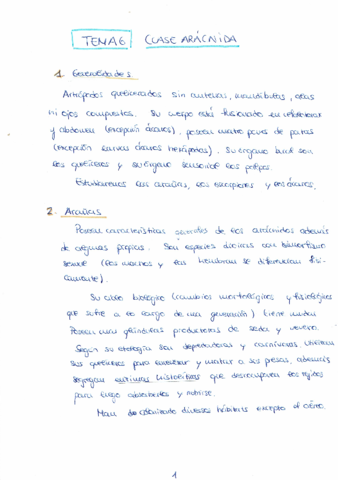 TEMA 6 CLASE ARÁCNIDA
1. Generalidades
Artrópodos quelicerados sin antenas, mandíbulas, alas
ni ojos compuestos. Su cuerpo está fusionado en cefalotórax
y abdomen (excepción ácaros). poseen cuatro pares de patas
(excepción larvas ácaros hexápodas). Su órgano bucal son
los quelíceros y su órgano sensorial los palpos.
Estudiaremos las arañas, los escorpiones y los ácaros.
2. Arañas
Poseen características generales de los arácnidos además
de algunas propias. Son especies dioicas con dimorfismo
sexual (los machos y las hembras se diferencian físi-
camente).
Su ciclo biológico (cambios morfológicos y fisiológicos
que sufre a lo largo de una generación) tiene mudas
Poseen unas glándulas productoras de seda y veneno.
Según su etología son depredadoras y carnívoras, utilizan
sus quelíceros para envenenar y matar a sus presas, además
segregan enzimas histolíticas que desestructuran los tejidos
para luego absorberlos y nutrirse.
Han colonizado diversos hábitats excepto el aéreo.
1